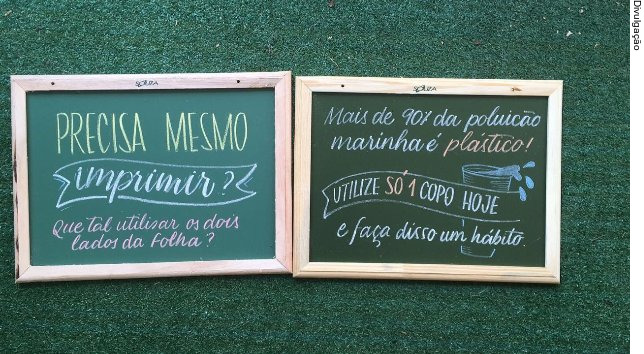 Divulgação
SOUZA
PRECISA MESMO
imprimir?
Que tal utilizar os dois
lados da folha?
SOUZA
Mais de 90% da poluição
marinha é plástico!
UTILIZE SÓ 1 COPO HOJE
e faça disso um hábito.